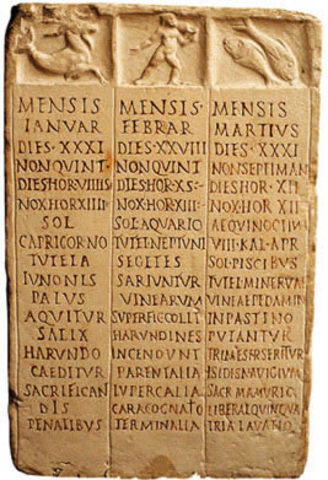 MENSIS
IANVAR
DIES·XXXI
NONQVINT
DIESHORVIIIIS
NOXHORXIIII·
SOL
CAPRICORNO
TVTELA
IVNONIS
PALVS
AQVITVR
SALIX
HARVNDO
CAEDITVR
SACRIFICAN
DIS
PENATIBVS
MENSIS·
FEBRAR
DIES·XXVIII
NONQVINT
DIESHOR·XS·
NOXHORXIII·
SOLAQVARIO
TVTELNEPTVNI
SEGETES
SARIVNTVR
VINEARVM
SVPERFICCOLIT
HARVNDINES
INCENDVNT
PARENTALIA
LVPERCALIA
CARACOGNATO
TERMINALIA
MENSIS
MARTIVS
DIES·XXXI
NONSEPTIMAN
DIESHOR·XII
NOX·HOR·XII
AEQVINOCTIVM
VIII·KAL·APR
SOL·PISCIBVS
TVTELMINERVAE
VINEAEPEDAMIN
INPASTINO
PVTANTVR
TRIMESTRSERITVR
ISIDISNAVIGIVM
SACRMAMVRIO
LIBERALQVINQVA
TRIALAVATIO